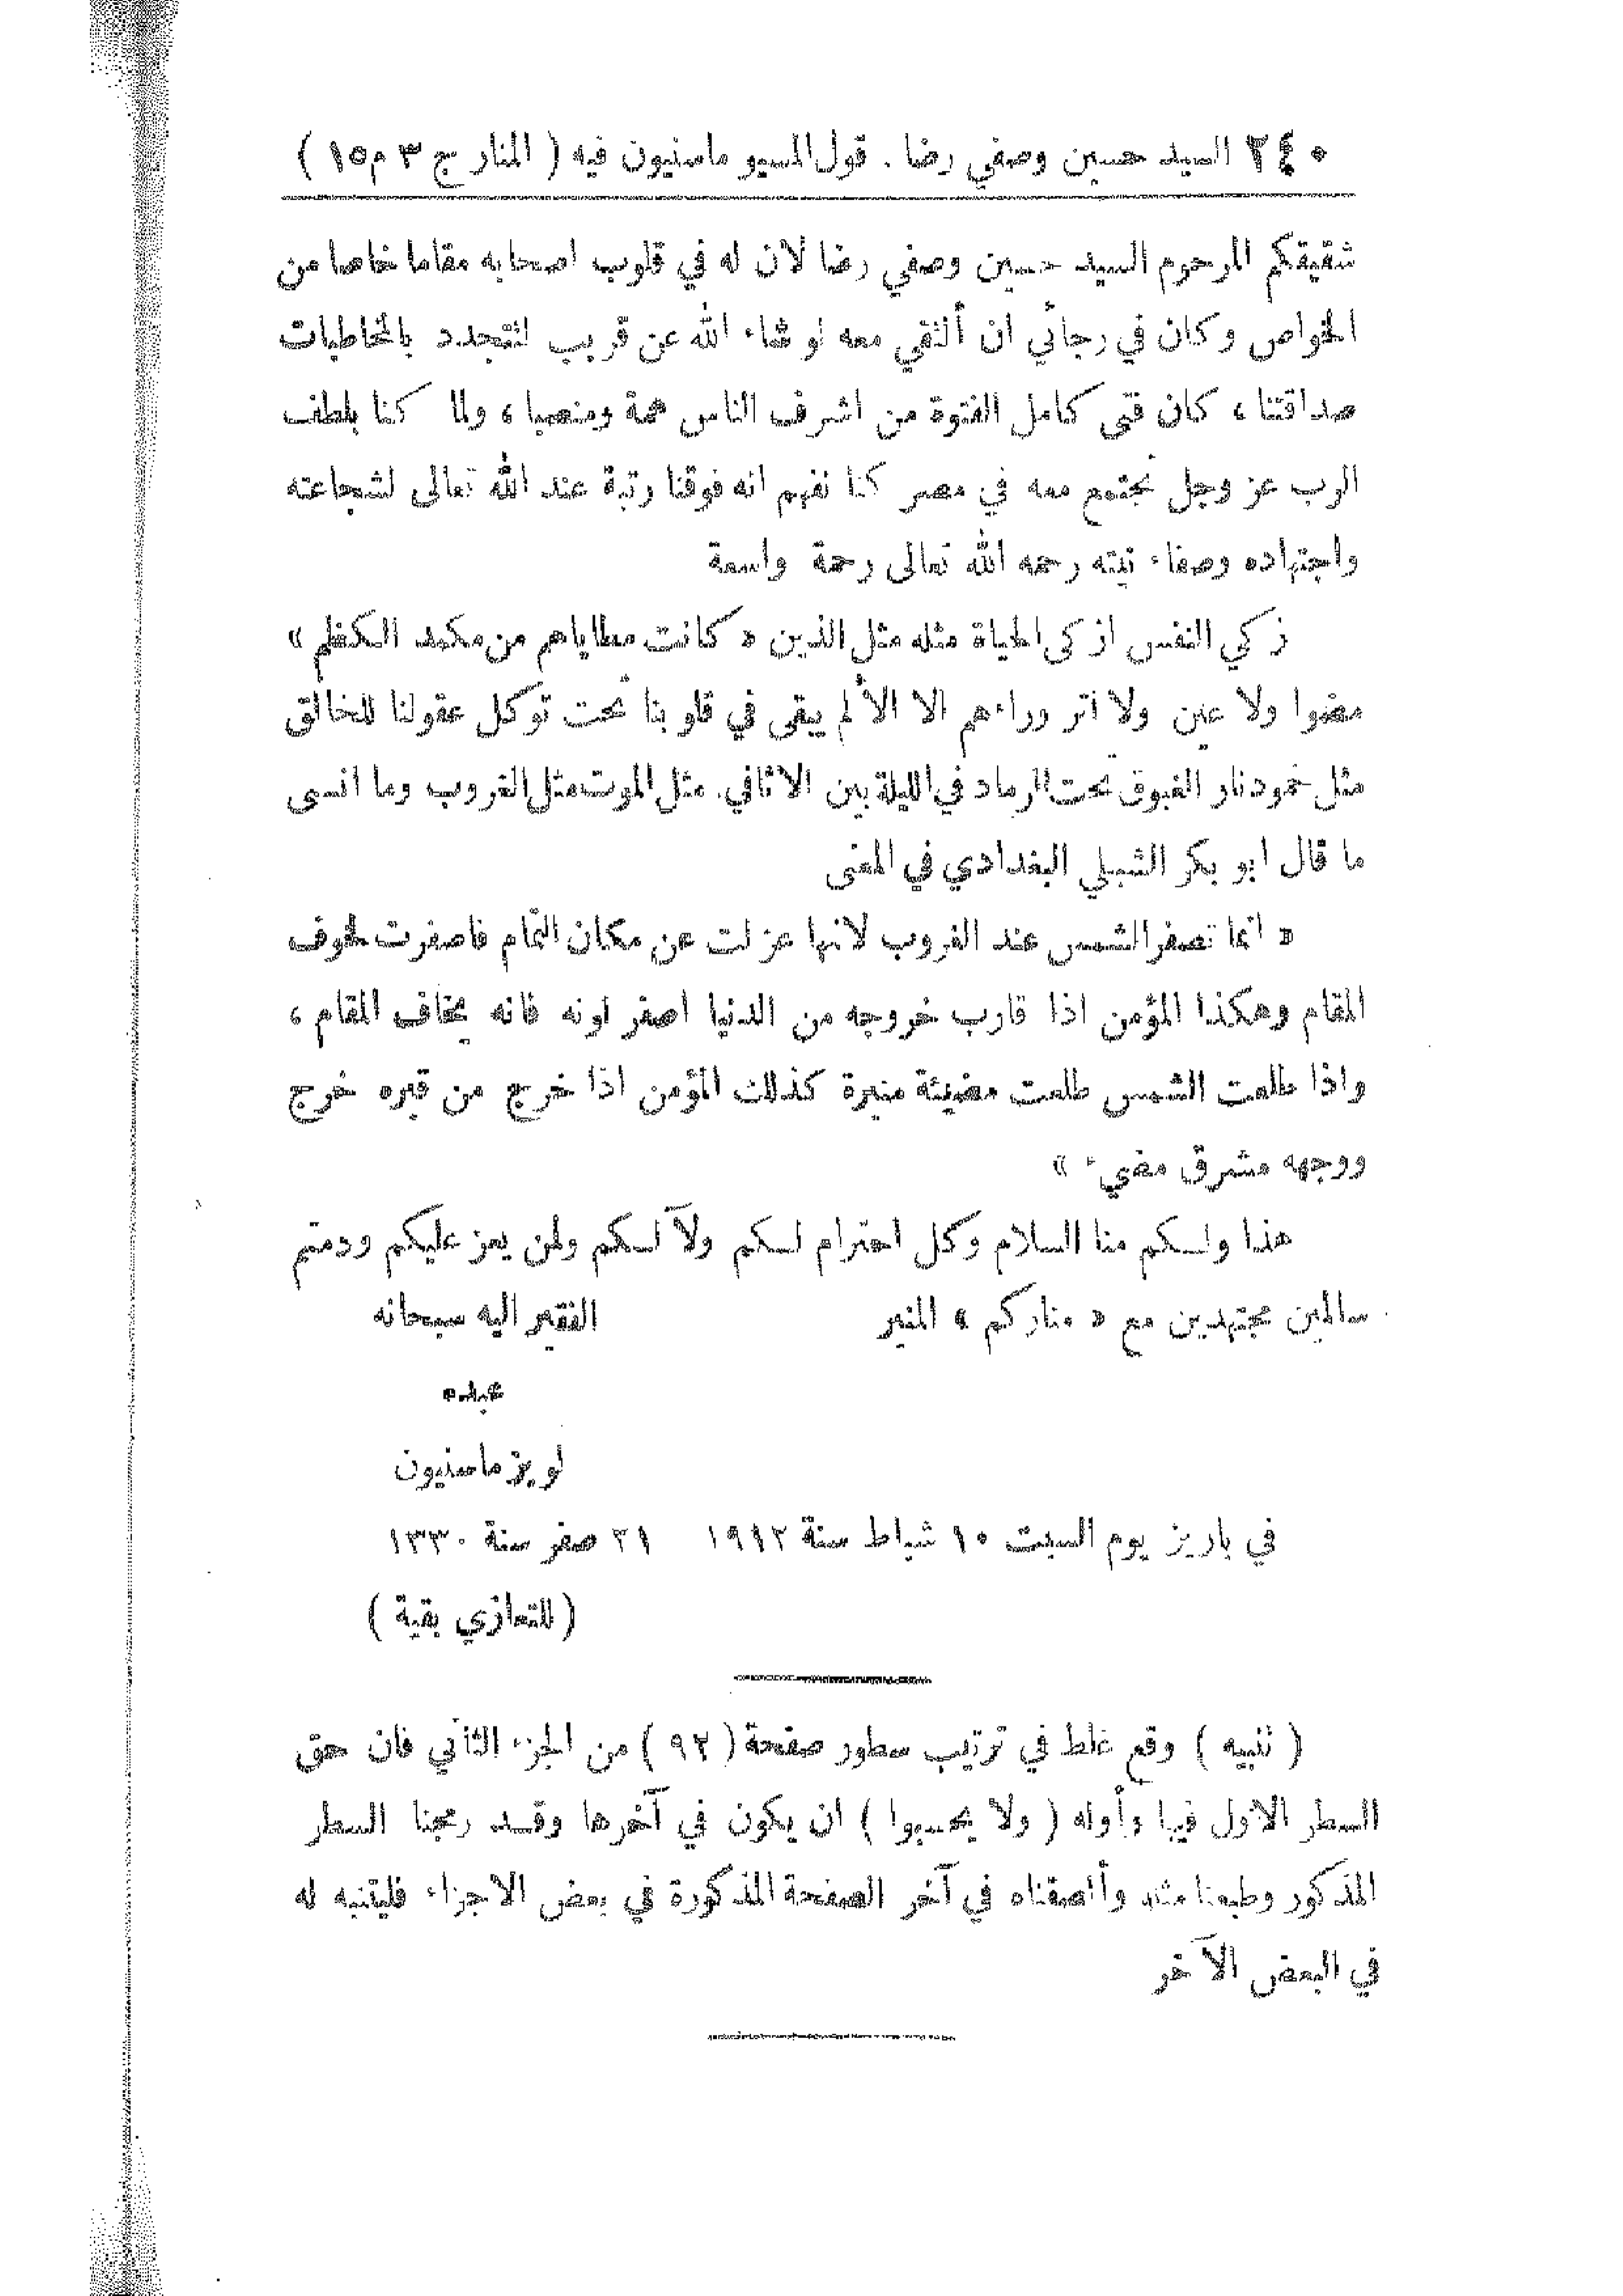 ٢٤٠ السيد حسين وصفي رضا . قول المسيو ماسنيون فيه ( المنار ج ٣ م ١٥ )
شقيقكم المرحوم السيد حسين وصفي رضا لان له في قلوب اصحابه مقاما خاصا من
الخواص وكان في رجائي ان ألتقي معه لو شاء الله عن قريب لتتجدد بالمخاطبات
صداقتنا ، كان فتى كامل الفتوة من اشرف الناس همة ومنصبا ، ولما كنا بلطف
الرب عز وجل نجتمع معه في مصر كنا نفهم انه فوقنا رتبة عند الله تعالى لشجاعته
واجتهاده وصفاء نيته رحمه الله تعالى رحمة واسعة
زكي النفس ازكى الحياة مثله مثل الذين « كانت مطاياهم من مكمد الكظم »
مضوا ولا عين ولا اثر وراءهم الا الألم يبقى في قلوبنا تحت توكل عقولنا للخالق
مثل خمود نار الغبوق تحت الرماد في الليلة بين الاثافي. مثل الموت مثل الغروب وما انسى
ما قال ابو بكر الشبلي البغدادي في المعنى
« انما تصفر الشمس عند الغروب لانها عزلت عن مكان التمام فاصفرت لخوف
المقام وهكذا المؤمن اذا قارب خروجه من الدنيا اصفر لونه فانه يخاف المقام ،
واذا طلعت الشمس طلعت مضيئة منيرة كذلك المؤمن اذا خرج من قبره خرج
ووجهه مشرق مضيء »
هذا ولكم منا السلام وكل احترام لكم ولآلكم ولمن يعز عليكم ودمتم
سالمين مجتهدين مع « مناركم » المنير الفقير اليه سبحانه
عبده
لويز ماسنيون
في باريز يوم السبت ١٠ شباط سنة ١٩١٢ ٢١ صفر سنة ١٣٣٠
( للتعازي بقية )
( تنبيه ) وقع غلط في ترتيب سطور صفحة ( ٩٢ ) من الجزء الثاني فان حق
السطر الاول فيها وأوله ( ولا يحسبوا ) ان يكون في آخرها وقد رمجنا السطر
المذكور وطبعنا مثله وألصقناه في آخر الصفحة المذكورة في بعض الاجزاء فليتنبه له
في البعض الآخر